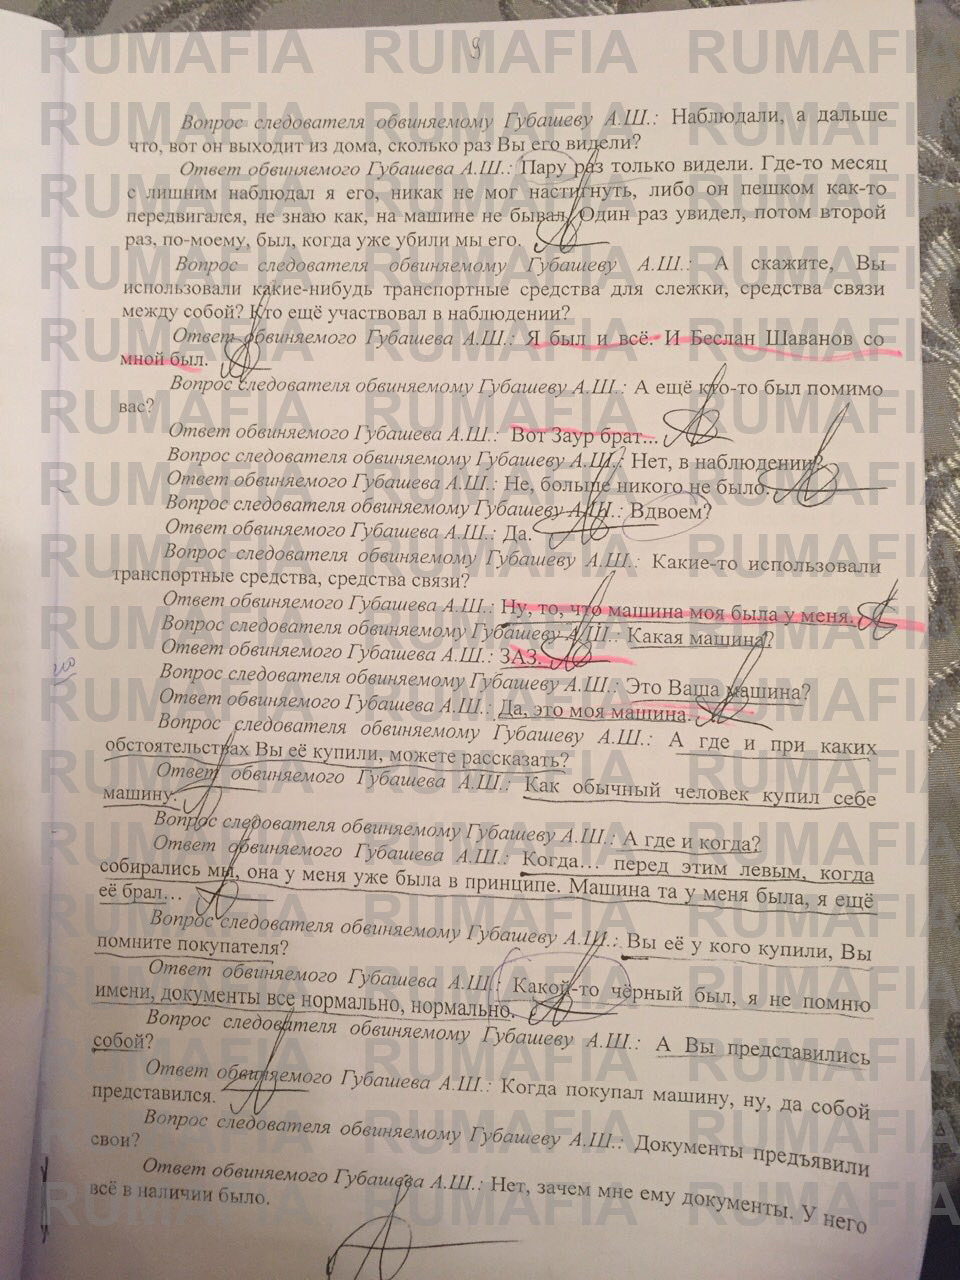 9
Вопрос следователя обвиняемому Губашеву А.Ш.: Наблюдали, а дальше
что, вот он выходит из дома, сколько раз Вы его видели?
Ответ обвиняемого Губашева А.Ш.: Пару раз только видели. Где-то месяц
с лишним наблюдал я его, никак не мог настигнуть, либо он пешком как-то
передвигался, не знаю как, на машине не бывал. Один раз увидел, потом второй
раз, по-моему, был, когда уже убили мы его.
Вопрос следователя обвиняемому Губашеву А.Ш.: А скажите, Вы
использовали какие-нибудь транспортные средства для слежки, средства связи
между собой? Кто ещё участвовал в наблюдении?
Ответ обвиняемого Губашева А.Ш.: Я был и всё. И Беслан Шаванов со
мной был.
Вопрос следователя обвиняемому Губашеву А.Ш.: А ещё кто-то был помимо
вас?
Ответ обвиняемого Губашева А.Ш.: Вот Заур брат...
Вопрос следователя обвиняемому Губашеву А.Ш.: Нет, в наблюдении?
Ответ обвиняемого Губашева А.Ш.: Не, больше никого не было.
Вопрос следователя обвиняемому Губашеву А.Ш.: Вдвоем?
Ответ обвиняемого Губашева А.Ш.: Да.
Вопрос следователя обвиняемому Губашеву А.Ш.: Какие-то использовали
транспортные средства, средства связи?
Ответ обвиняемого Губашева А.Ш.: Ну, то, что машина моя была у меня.
Вопрос следователя обвиняемому Губашеву А.Ш.: Какая машина?
Ответ обвиняемого Губашева А.Ш.: ЗАЗ.
Вопрос следователя обвиняемому Губашеву А.Ш.: Это Ваша машина?
Ответ обвиняемого Губашева А.Ш.: Да, это моя машина.
Вопрос следователя обвиняемому Губашеву А.Ш.: А где и при каких
обстоятельствах Вы её купили, можете рассказать?
Ответ обвиняемого Губашева А.Ш.: Как обычный человек купил себе
машину.
Вопрос следователя обвиняемому Губашеву А.Ш.: А где и когда?
Ответ обвиняемого Губашева А.Ш.: Когда... перед этим левым, когда
собирались мы, она у меня уже была в принципе. Машина та у меня была, я ещё
её брал...
Вопрос следователя обвиняемому Губашеву А.Ш.: Вы её у кого купили, Вы
помните покупателя?
Ответ обвиняемого Губашева А.Ш.: Какой-то чёрный был, я не помню
имени, документы все нормально, нормально.
Вопрос следователя обвиняемому Губашеву А.Ш.: А Вы представились
собой?
Ответ обвиняемого Губашева А.Ш.: Когда покупал машину, ну, да собой
представился.
Вопрос следователя обвиняемому Губашеву А.Ш.: Документы предъявили
свои?
Ответ обвиняемого Губашева А.Ш.: Нет, зачем мне ему документы. У него
всё в наличии было.